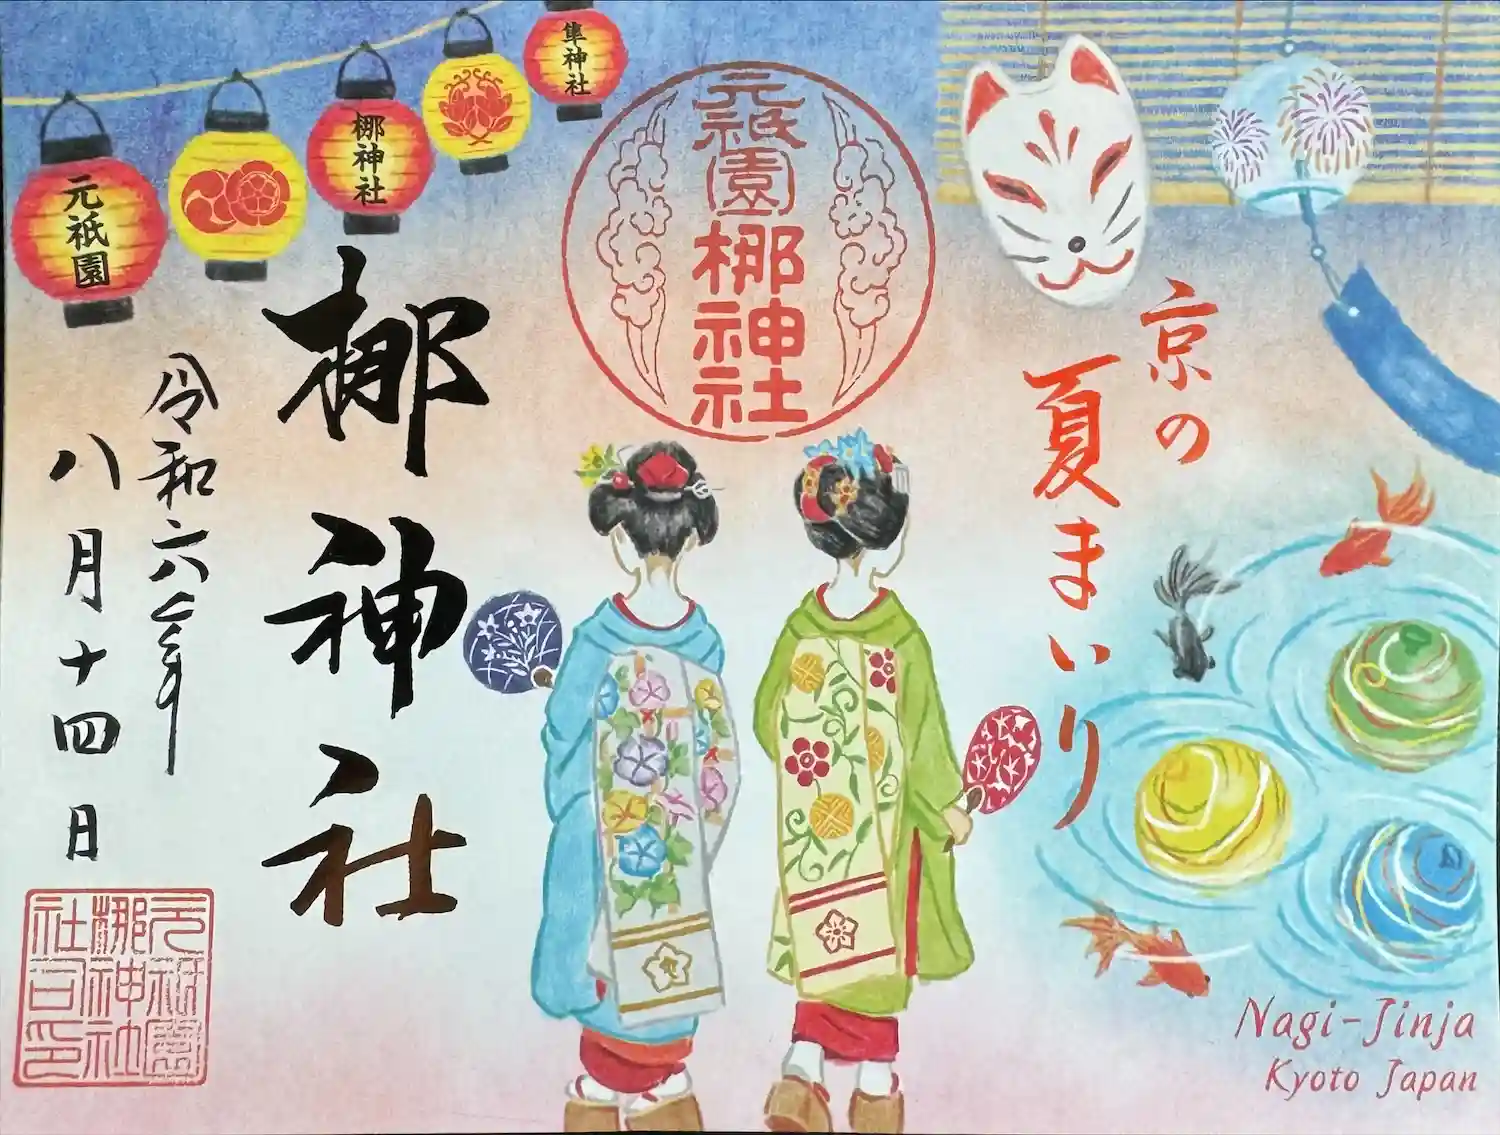 京の
夏まいり
元祇園
梛神社
梛神社
令和六年
八月十四日
元祇園
梛神社
隼神社
元祇園
梛神社
社司印
Nagi-Jinja
Kyoto Japan